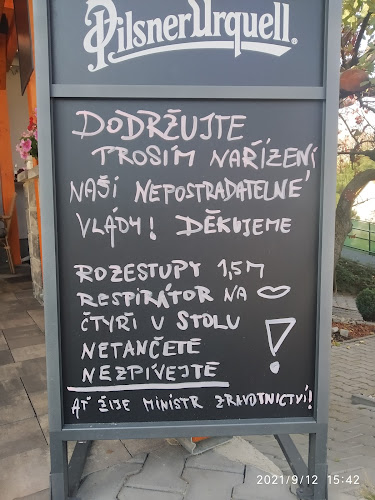 Pilsner Urquell
DODRŽUJTE
PROSÍM NAŘÍZENÍ
NAŠÍ NEPOSTRADATELNÉ
VLÁDY! DĚKUJEME
ROZESTUPY 1,5M
RESPIRÁTOR NA
ČTYŘI U STOLU
NETANČETE
NEZPÍVEJTE !
AŤ ŽIJE MINISTR ZDRAVOTNICTVÍ!
2021/9/12 15:42